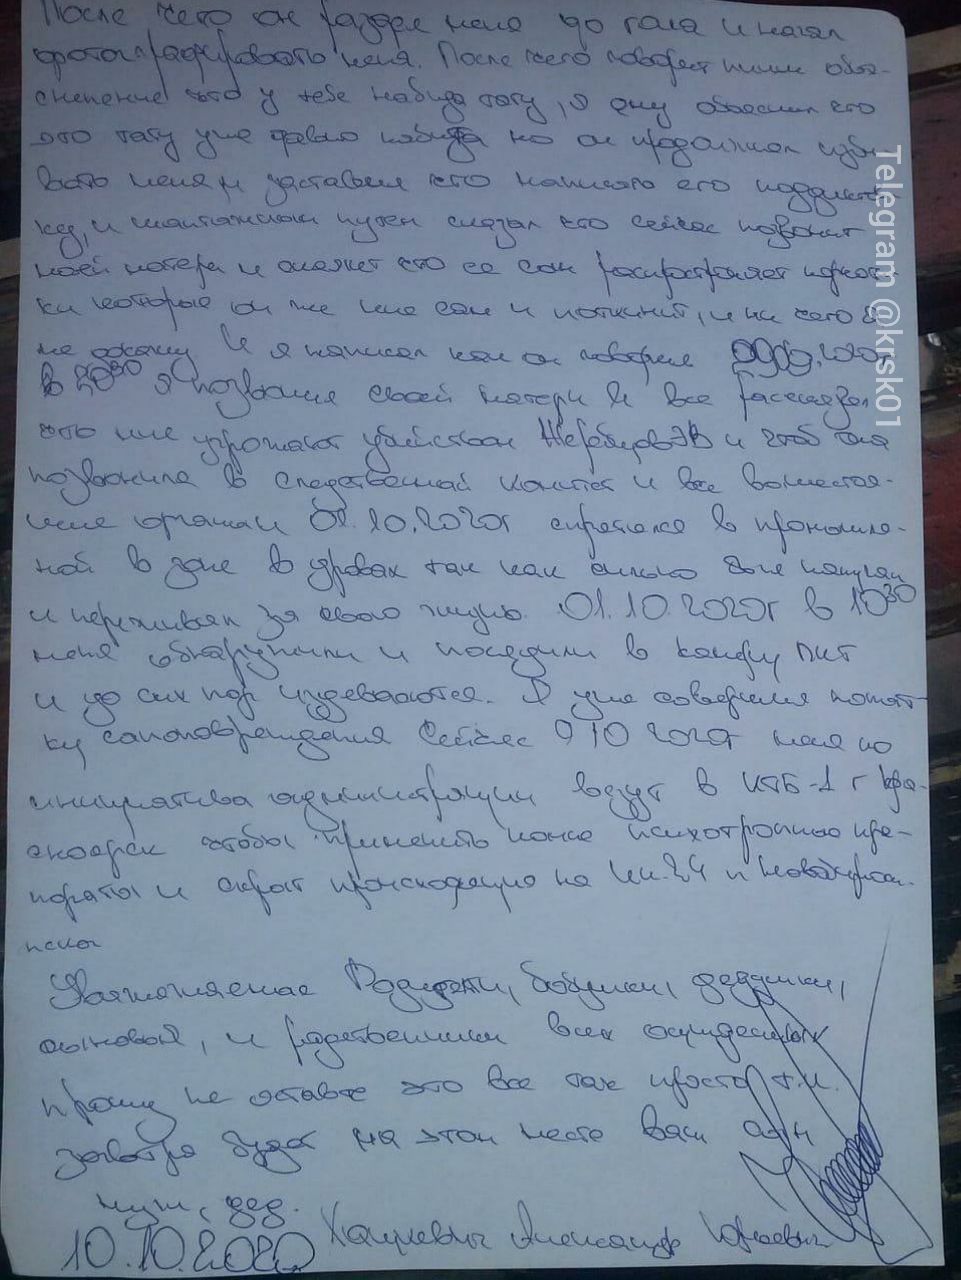 После чего он раздел меня до гола и начал
фотографировать меня. После чего говорит пиши объя-
снение что у тебя набита тату, я ему объяснил что
это тату уже давно набита но он продолжал изби
вать меня и заставлял что написать его под диктов-
ку, и шантажным путем сказал что сейчас позвонит
моей матери и скажет что ее сын распространяет наркоти-
ки которые он же мне сам и поткинит, и ни чего я
не докажу И я написал как он говорил
в 20 30 я позвонил своей матери И все рассказал
что мне угрожают убийством и чтоб она
позвонила в Следственный комитет и все вышестоя-
щие органы 01.10.2020г спрятался в промышле-
ной в зоне в дровах так как сильно был напуган
и переживал за свою жизнь. 01.10.2020г в 10 30
меня обнаружили и посадили в камеру ПКТ
и до сих пор издеваются. Я уже совершил попыт-
ку самоповреждения Сейчас 9 10 2020г меня по
инициативе администрации везут в КТБ-1 г Кра-
сноярск чтобы применить психотропные пре-
параты и скрыть происходящие на ИК-24 п
Уважаемые Родители, бабушки, дедушки,
сыновья, и родственники всех осужденных
прошу не оставте это все так просто т.к.
завтра будет на этом месте ваш сын
муж, дед.
10.10.2020 Александр Юрьевич
Telegram @krsk01